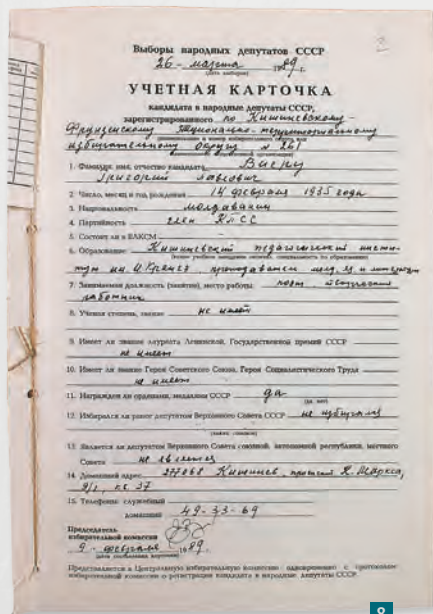 2
Выборы народных депутатов СССР
26 марта 1989 г.
(дата выборов)
УЧЕТНАЯ КАРТОЧКА
кандидата в народные депутаты СССР,
зарегистрированного по Кишиневскому-
Фрунзенскому национально-территориальному
избирательному округу № 261
1. Фамилия, имя, отчество кандидата Виеру
Григорий Павлович
2. Число, месяц и год рождения 14 февраля 1935 года
3. Национальность молдаванин
4. Партийность член КПСС
5. Состоит ли в ВЛКСМ
6. Образование Кишиневский педагогический инсти-
тут им. И. Крянгэ, преподаватель молд. яз. и литературы
7. Занимаемая должность (занятие), место работы поэт, творческий
работник
8. Ученая степень, звание не имеет
9. Имеет ли звание лауреата Ленинской, Государственной премий СССР
не имеет
10. Имеет ли звание Героя Советского Союза, Героя Социалистического Труда
не имеет
11. Награжден ли орденами, медалями СССР да
(да, нет)
12. Избирался ли ранее депутатом Верховного Совета СССР не избирался
13. Является ли депутатом Верховного Совета союзной, автономной республики, местного
Совета не является
14. Домашний адрес 277068 Кишинев, проспект К. Маркса,
кв. 37
15. Телефоны: служебный
домашний 49-33-69
Председатель
избирательной комиссии
9 февраля 1989 г.
Представляется в Центральную избирательную комиссию одновременно с протоколом
избирательной комиссии о регистрации кандидата в народные депутаты СССР.
8